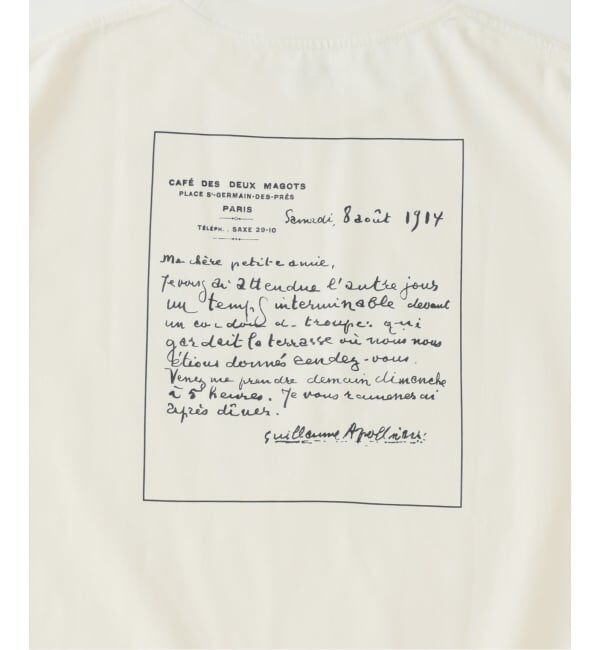 CAFÉ DES DEUX MAGOTS
PLACE St-GERMAIN-DES-PRÉS
PARIS
TÉLÉPH. : SAXE 29-10
Samedi, 8 août 1914
Ma chère petite amie,
Je vous ai attendue l'autre jour
un temps interminable devant
un cordon de troupes qui
gardait la terrasse où nous nous
étions donnés rendez-vous.
Venez me prendre demain dimanche
à 5 heures. Je vous ramenerai
après dîner.
Guillaume Apollinaire